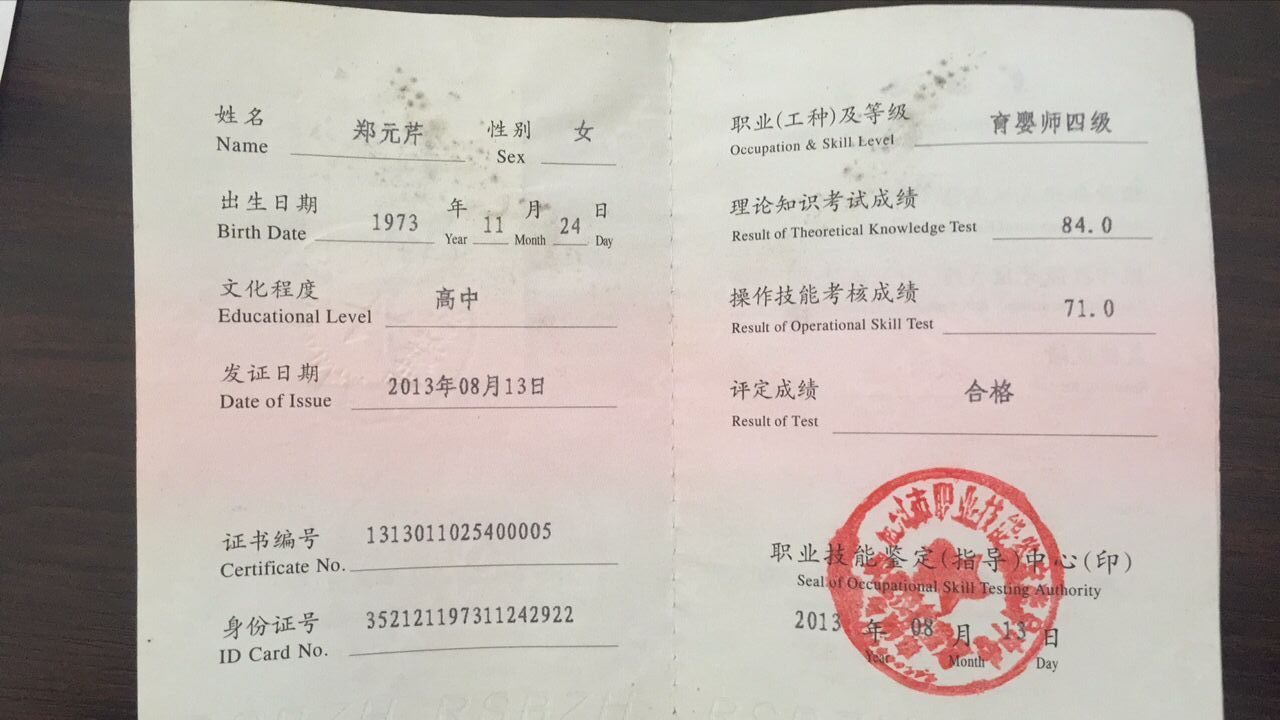 姓名 郑元芹 性别 女
Name Sex
出生日期 1973 年 11 月 24 日
Birth Date Year Month Day
文化程度 高中
Educational Level
发证日期 2013年08月13日
Date of Issue
证书编号 1313011025400005
Certificate No.
身份证号 352121197311242922
ID Card No.
职业(工种)及等级 育婴师四级
Occupation & Skill Level
理论知识考试成绩 84.0
Result of Theoretical Knowledge Test
操作技能考核成绩 71.0
Result of Operational Skill Test
评定成绩 合格
Result of Test
职业技能鉴定(指导)中心(印)
Seal of Occupational Skill Testing Authority
2013 年 08 月 13 日
Year Month Day
市职业技能